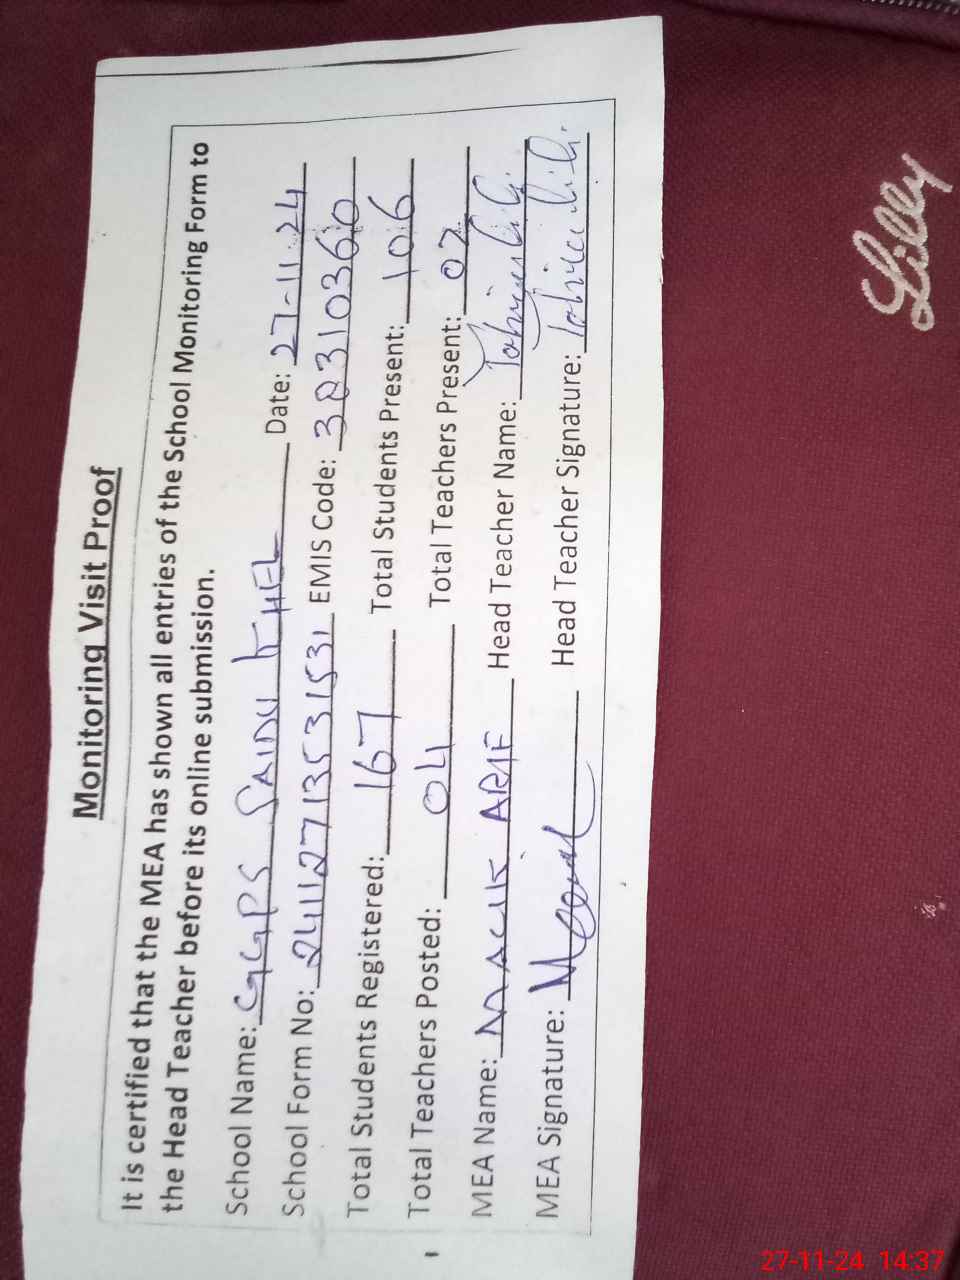 Monitoring Visit Proof
It is certified that the MEA has shown all entries of the School Monitoring Form to
the Head Teacher before its online submission.
School Name: GGPS SAIDU KHEL Date: 27-11-24
School Form No: 241127135531531 EMIS Code: 38310360
Total Students Registered: 167 Total Students Present: 106
Total Teachers Posted: 04 Total Teachers Present: 02
MEA Name: MALIK ARIF Head Teacher Name:
MEA Signature: Head Teacher Signature:
Lilly
27-11-24 14:37